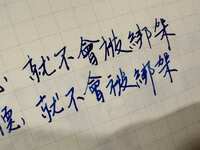 就不會被綁架
就不會被綁架